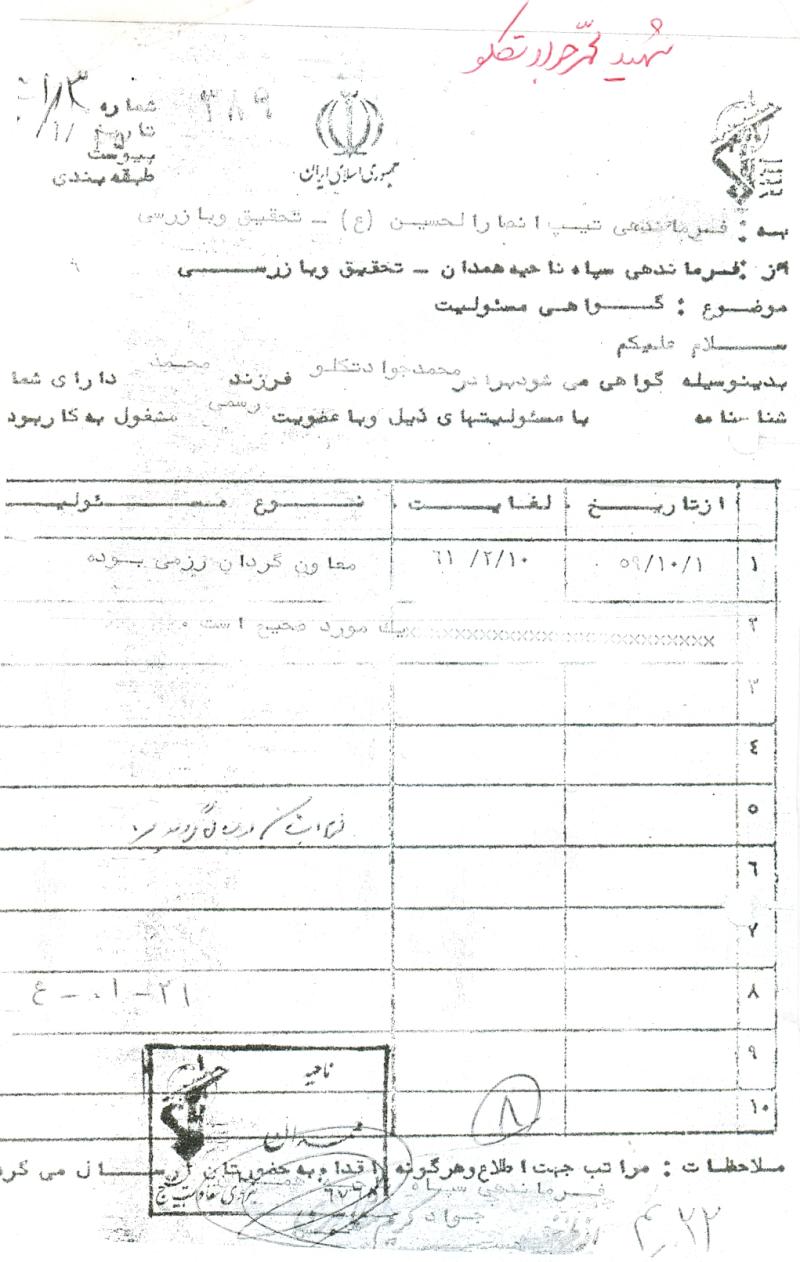 شهید محمدجواد تکلو
شماره ٣٨٩
تاریخ
پیوست
طبقه بندی
جمهوری اسلامی ایران
به : فرماندهی تیپ انصارالحسین (ع) - تحقیق وبازرسی
از : فرماندهی سپاه ناحیه همدان - تحقیق وبازرسی
موضوع : گواهی مسئولیت
سلام علیکم
بدینوسیله گواهی می شودبرادر محمدجوادتکلو فرزند محمد دارای شما
شناسنامه با مسئولیتهای ذیل وبا عضویت رسمی مشغول به کاربود
ازتاریخ لغایت نوع مسئولیت
١ ٥٩/١٠/١ ٦١/٢/١٠ معاون گردان رزمی بوده
٢ xxxxxxxxxxxxxxxxxxxxxxxxxxxx یك مورد صحیح است
٣
٤
٥
٦
٧
٨ ٢١-٠١-ع
٩
١٠
ناحیه
همدان
٨
ملاحظات : مراتب جهت اطلاع وهرگونه اقدام به حضورتان ارسال می گرد
فرماندهی سپاه
جواد